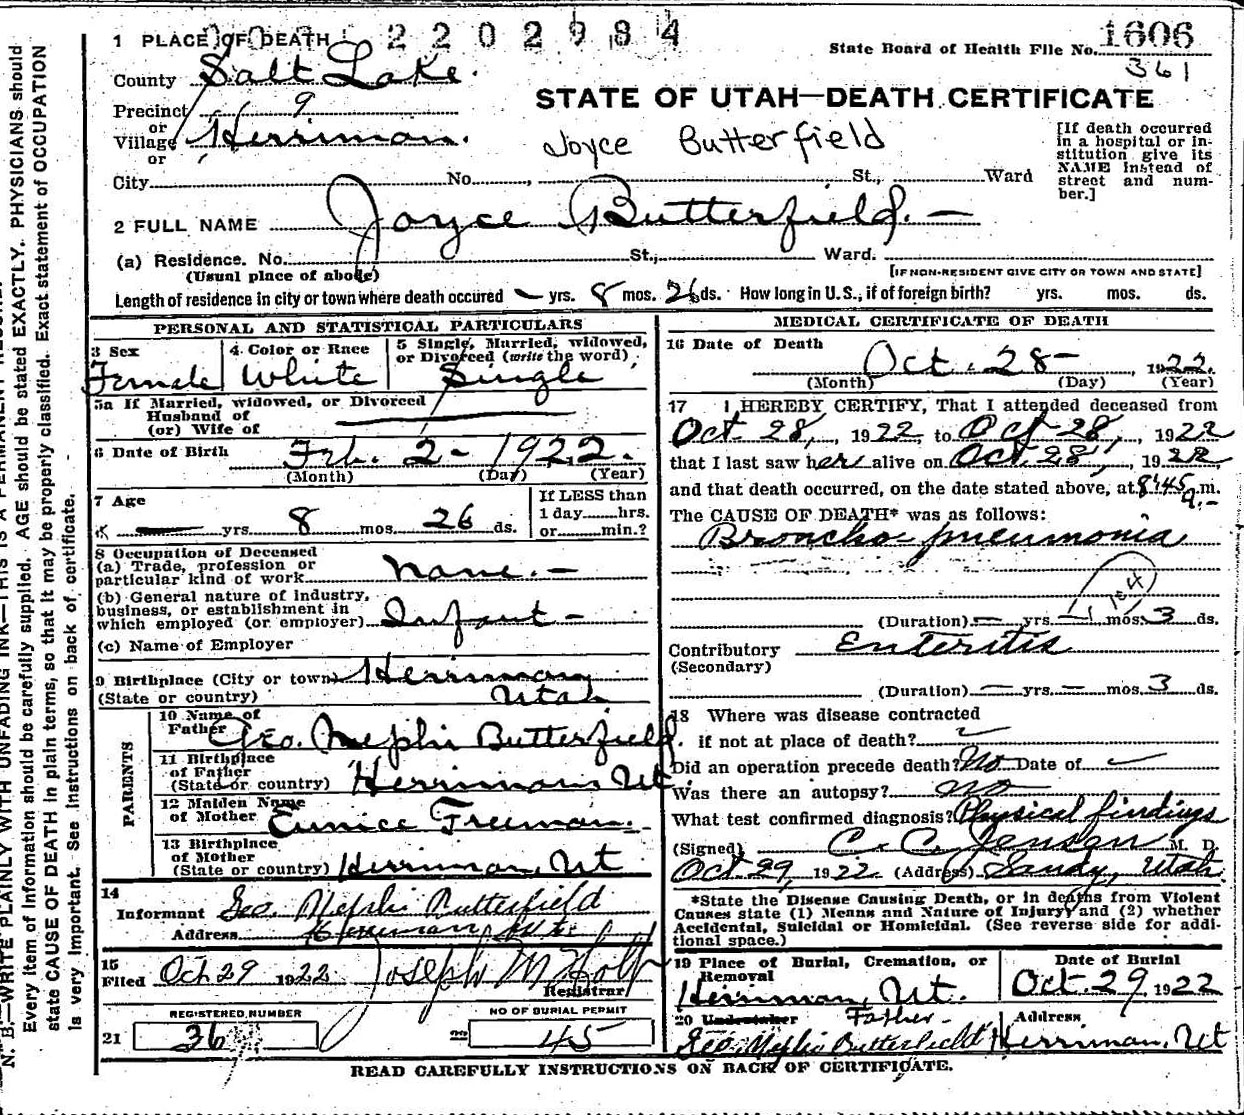 1 PLACE OF DEATH
2202984
State Board of Health File No. 1606
361
County Salt Lake.
STATE OF UTAH—DEATH CERTIFICATE
Precinct 9
or
Village Herriman.
or
Joyce Butterfield
[If death occurred in a hospital or institution give its NAME instead of street and number.]
City No. , St., Ward
2 FULL NAME Joyce Butterfield. —
(a) Residence. No. St., Ward.
(Usual place of abode)
[IF NON-RESIDENT GIVE CITY OR TOWN AND STATE]
Length of residence in city or town where death occured — yrs. 8 mos. 26 ds. How long in U. S., if of foreign birth? yrs. mos. ds.
PERSONAL AND STATISTICAL PARTICULARS
3 Sex
Female
4 Color or Race
White
5 Single, Married, widowed, or Divorced (write the word)
Single
5a If Married, widowed, or Divorced
Husband of
(or) Wife of
6 Date of Birth Feb. 2 - 1922.
(Month) (Day) (Year)
7 Age
— yrs. 8 mos. 26 ds.
If LESS than
1 day hrs.
or min.?
8 Occupation of Deceased
(a) Trade, profession or
particular kind of work none. —
(b) General nature of Industry,
business, or establishment in
which employed (or employer) Infant —
(c) Name of Employer
9 Birthplace (City or town) Herriman
(State or country) Utah
PARENTS
10 Name of
Father Geo. Nephi Butterfield.
11 Birthplace
of Father
(State or country) Herriman, Ut.
12 Maiden Name
of Mother Eunice Freeman.
13 Birthplace
of Mother
(State or country) Herriman, Ut
14
Informant Geo. Nephi Butterfield
Address Herriman, Ut.
15
Filed Oct 29 1922 Joseph M Holt
Registrar
REGISTERED NUMBER
21 36
NO OF BURIAL PERMIT
22 45
MEDICAL CERTIFICATE OF DEATH
16 Date of Death
Oct. 28 — , 1922.
(Month) (Day) (Year)
17 I HEREBY CERTIFY, That I attended deceased from
Oct. 28, , 1922, to Oct 28, , 1922
that I last saw her alive on Oct. 28, , 1922,
and that death occurred, on the date stated above, at 8:45 a.m.
The CAUSE OF DEATH* was as follows:
Broncho pneumonia
(Duration) — yrs. — mos. 3 ds.
Contributory Enteritis
(Secondary)
(Duration) — yrs. — mos. 3 ds.
18 Where was disease contracted
if not at place of death?
Did an operation precede death? No Date of
Was there an autopsy? no
What test confirmed diagnosis? Physical findings
(Signed) C. C. Jensen M. D.
Oct 29, 1922 (Address) Sandy, Utah.
*State the Disease Causing Death, or in deaths from Violent
Causes state (1) Means and Nature of Injury and (2) whether
Accidental, Suicidal or Homicidal. (See reverse side for addi-
tional space.)
19 Place of Burial, Cremation, or
Removal
Herriman, Ut.
Date of Burial
Oct. 29, 1922
20 Undertaker Father
Geo. Nephi Butterfield
Address
Herriman, Ut
READ CAREFULLY INSTRUCTIONS ON BACK OF CERTIFICATE.
N. B.—WRITE PLAINLY WITH UNFADING INK—THIS IS A PERMANENT
Every item of Information should be carefully supplied. AGE should be stated EXACTLY. PHYSICIANS should
state CAUSE OF DEATH in plain terms, so that it may be properly classified. Exact statement of OCCUPATION
is very important. See Instructions on back of certificate.